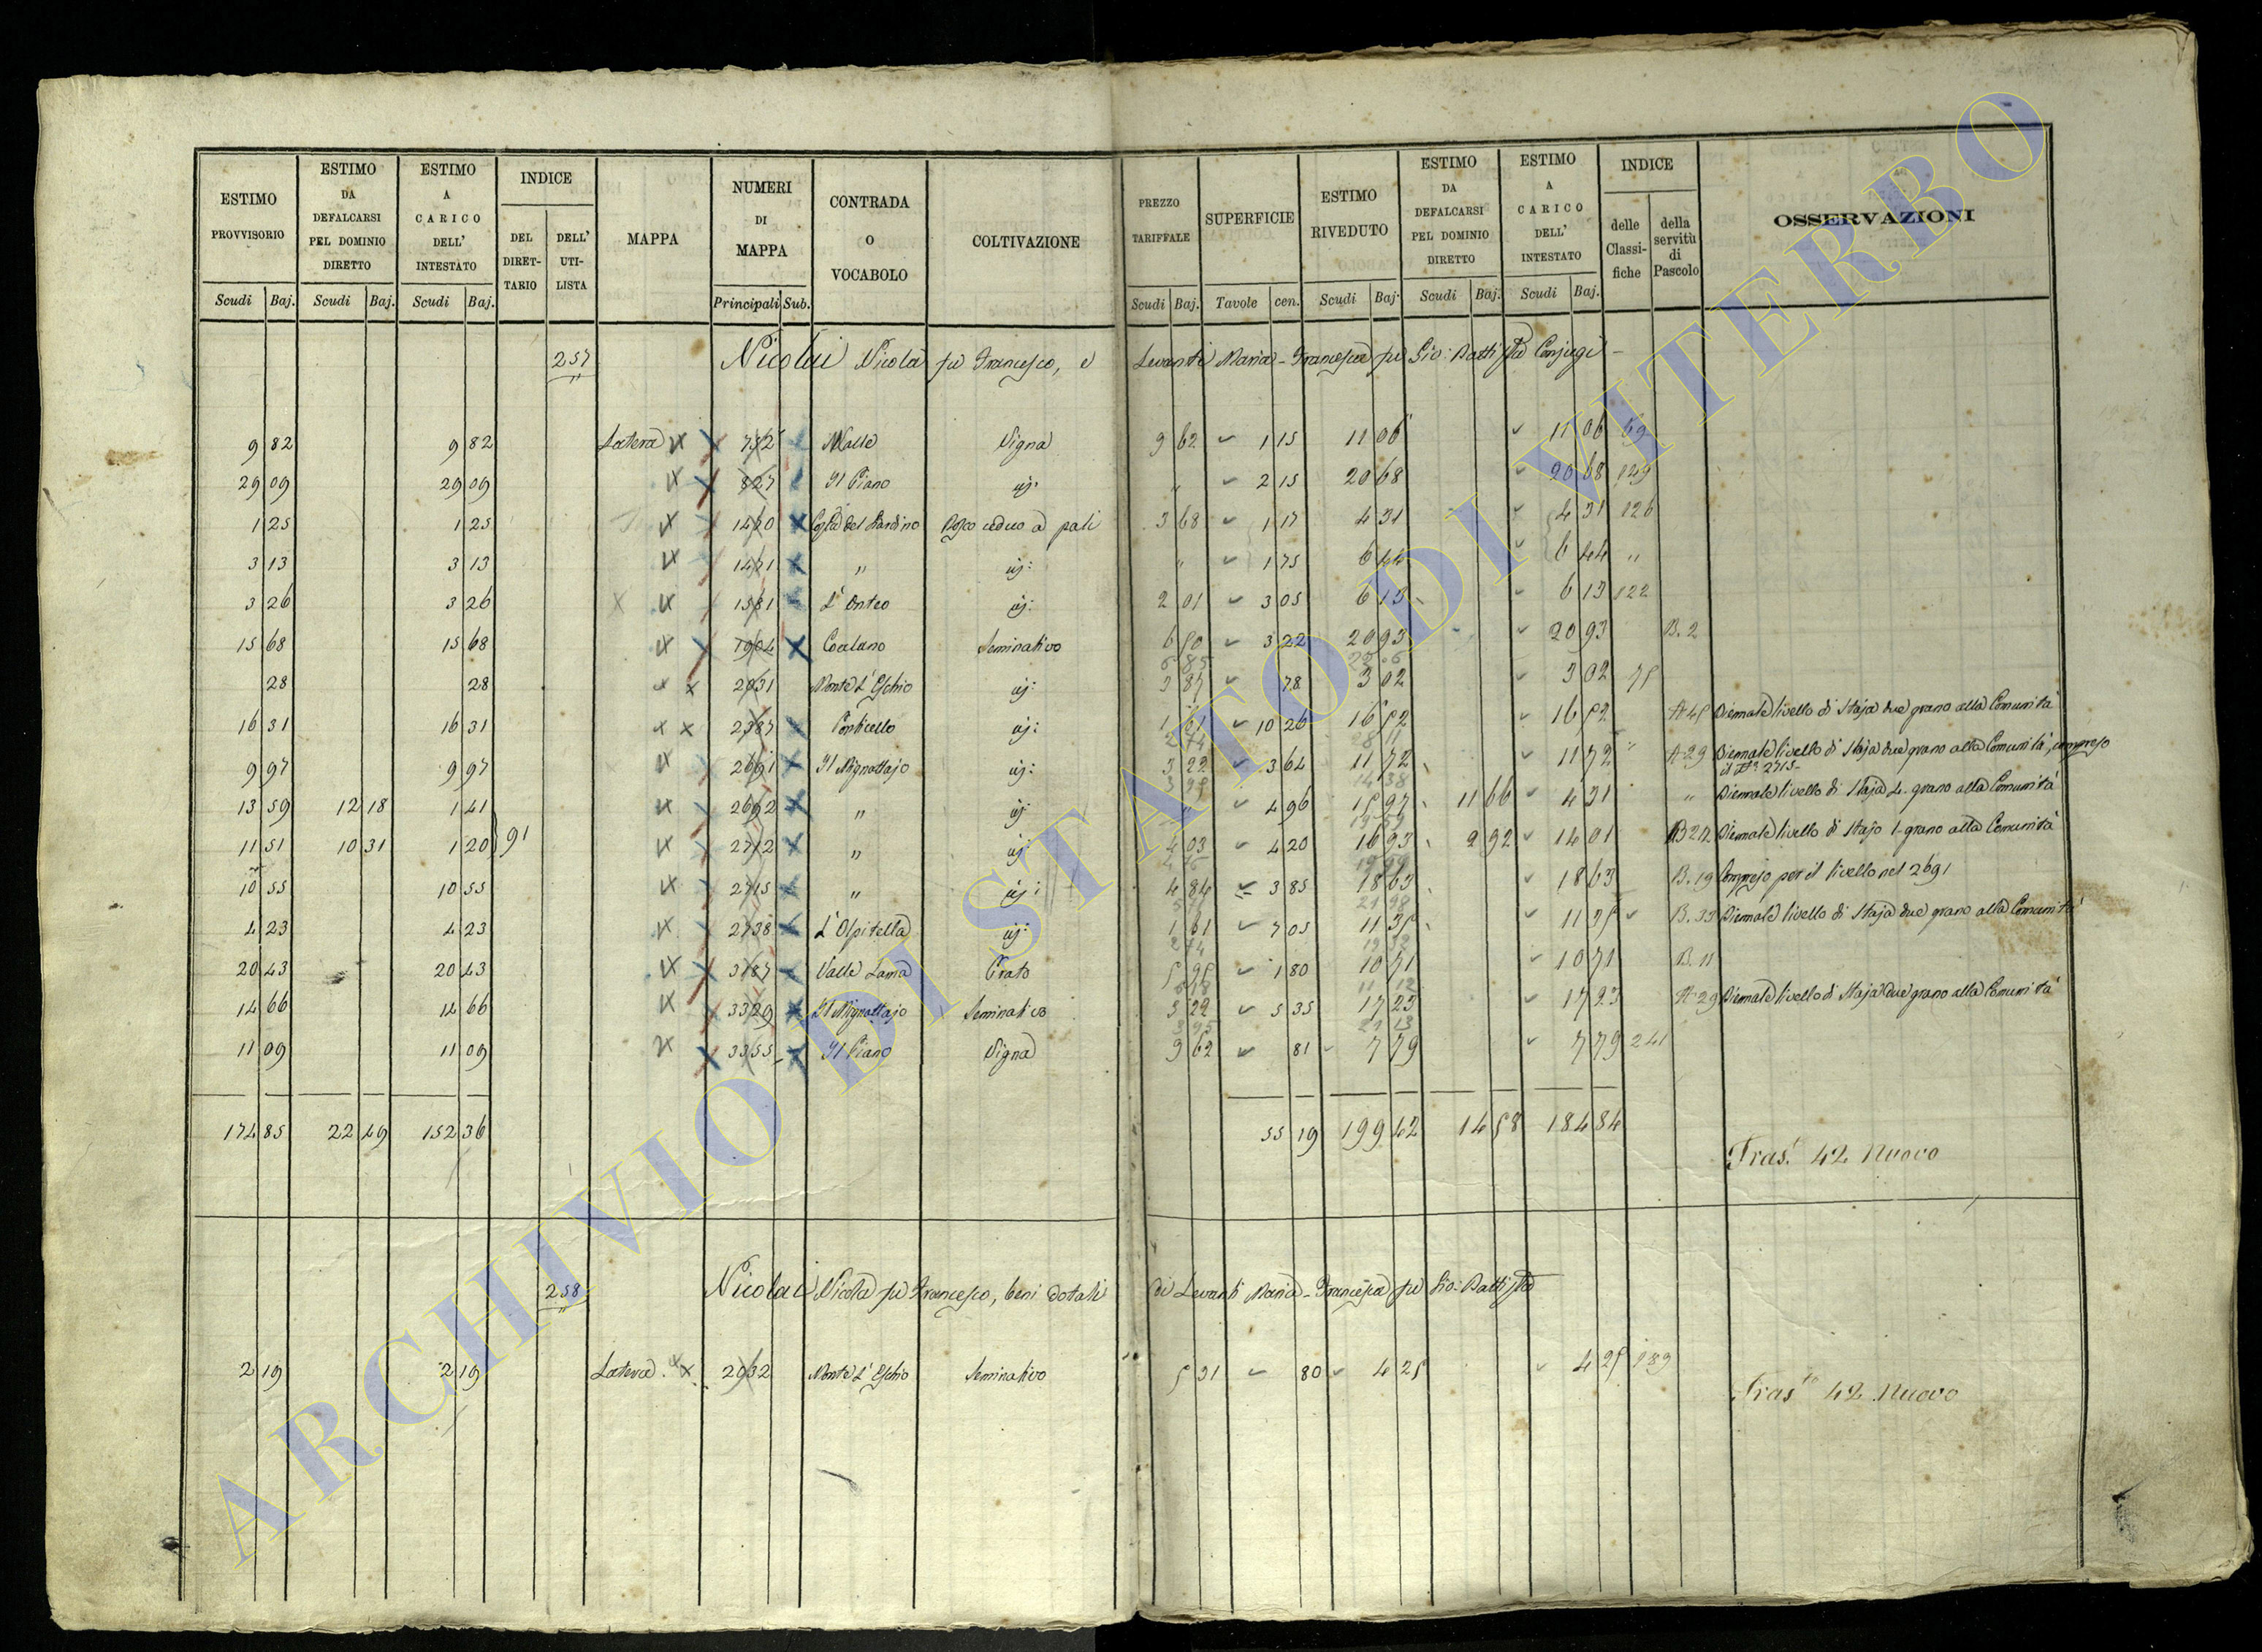 ESTIMO PROVVISORIO | ESTIMO DA DEFALCARSI PEL DOMINIO DIRETTO | ESTIMO A CARICO DELL' INTESTATO | INDICE | MAPPA | NUMERI DI MAPPA | CONTRADA O VOCABOLO | COLTIVAZIONE | PREZZO TARIFFALE | SUPERFICIE | ESTIMO RIVEDUTO | ESTIMO DA DEFALCARSI PEL DOMINIO DIRETTO | ESTIMO A CARICO DELL' INTESTATO | INDICE | OSSERVAZIONI
DEL DIRETTARIO | DELL' UTILISTA | delle Classifiche | della servitù di Pascolo
Scudi | Baj. | Scudi | Baj. | Scudi | Baj. | Principali | Sub. | Scudi | Baj. | Tavole | cen. | Scudi | Baj. | Scudi | Baj. | Scudi | Baj.
257 Nicolai Nicola fu Francesco, e Levanti Maria-Francesca fu Gio: Battista Conjugi
9 82 | 9 82 | Latera | 752 | Valle | Vigna | 9 62 | 1 15 | 11 06 | 11 06 | 69
29 09 | 29 09 | 827 | Il Piano | " | 2 15 | 20 68 | 20 68 | 149
1 25 | 1 25 | 1470 | Bosco ceduo a pali | 3 68 | 1 17 | 4 31 | 4 31 | 126
3 13 | 3 13 | 1471 | " | " | 1 75 | 6 44 | 6 44 | "
3 26 | 3 26 | 1581 | 2 01 | 3 05 | 6 13 | 6 13 | 122
15 68 | 15 68 | 1904 | Seminativo | 6 50 | 3 22 | 20 93 | 20 93 | B. 2
28 | 28 | 2031 | Monte L'Eschio | 3 87 | 78 | 3 02 | 3 02 | 75
16 31 | 16 31 | 2387 | Ponticello | 1 61 | 10 26 | 16 52 | 16 52 | A 45 | Biennale livello di Staja due grano alla Comunità
9 97 | 9 97 | 2691 | Il Mignattajo | 3 22 | 3 64 | 11 72 | 11 72 | A 29 | Biennale livello di Staja due grano alla Comunità, compreso
il N° 2715
13 59 | 12 18 | 1 41 | 2692 | " | " | 4 96 | 15 97 | 11 66 | 4 31 | " | Biennale livello di Staja 4. grano alla Comunità
11 51 | 10 31 | 1 20 | 91 | 2712 | " | 4 03 | 4 20 | 16 93 | 2 92 | 14 01 | Biennale livello di Stajo 1. grano alla Comunità
10 55 | 10 55 | 2715 | " | 4 84 | 3 85 | 18 63 | 18 63 | B. 19 | Compreso per il livello nel 2691
4 23 | 4 23 | 2738 | L'Ospitella | 1 61 | 7 05 | 11 35 | 11 35 | B. 33 | Biennale livello di Staja due grano alla Comunità
20 43 | 20 43 | 3187 | Valle Lama | Prato | 5 95 | 1 80 | 10 71 | 10 71 | B. 11
14 66 | 14 66 | 3329 | Il Mignattajo | Seminativo | 3 22 | 5 35 | 17 23 | 17 23 | A 29 | Biennale livello di Staja due grano alla Comunità
11 09 | 11 09 | 3355 | Il Piano | Vigna | 9 62 | 81 | 7 79 | 7 79 | 241
174 85 | 22 49 | 152 36 | 55 19 | 199 42 | 14 58 | 184 84
Tras. 42 Nuovo
258 Nicolai Nicola fu Francesco, beni dotali di Levanti Maria-Francesca fu Gio: Battista
2 19 | 2 19 | Latera | 2032 | Monte L'Eschio | Seminativo | 5 31 | 80 | 4 25 | 4 25 | 189
Tras. 42 Nuovo
ARCHIVIO DI STATO DI VITERBO